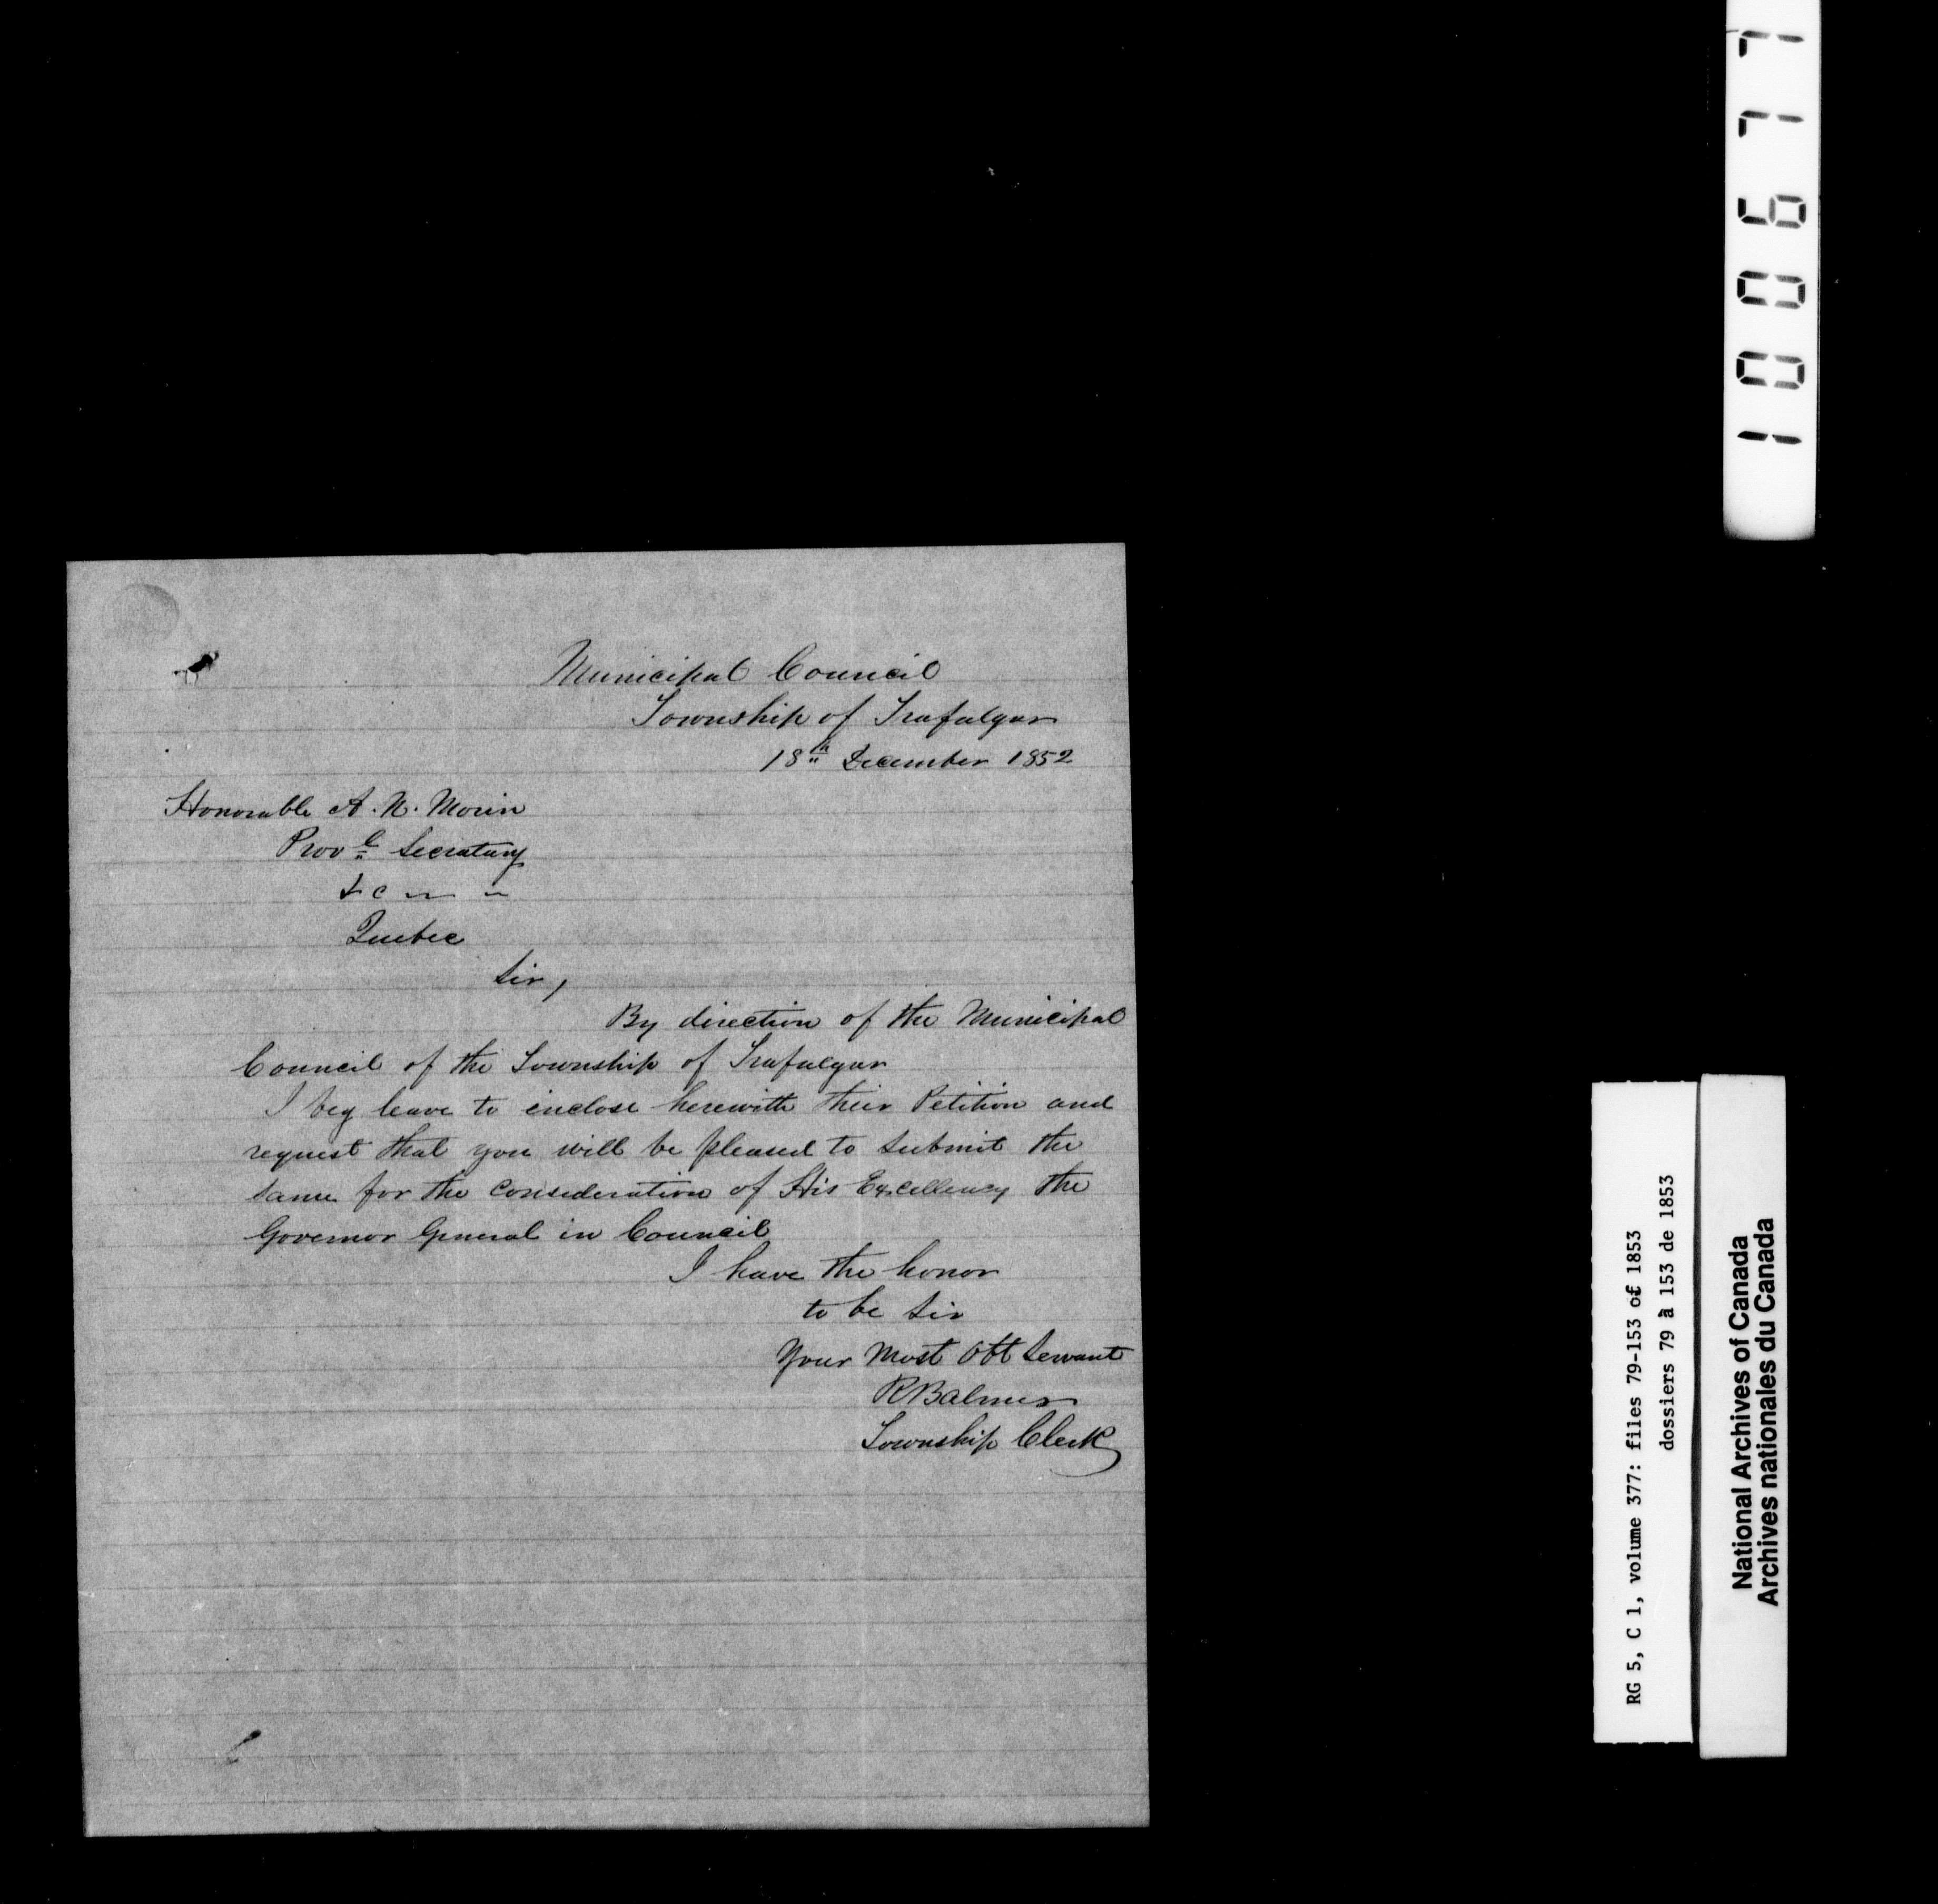 Municipal Council
Township of Trafalgar
18th December 1852
Honorable A. N. Morin
Provl Secretary
&c
Quebec
Sir,
By direction of the Municipal
Council of the Township of Trafalgar
I beg leave to enclose herewith their Petition and
request that you will be pleased to submit the
same for the consideration of His Excellency the
Governor General in Council
I have the honor
to be Sir
Your Most Obt Servant
R Balmer
Township Clerk
100677
RG 5, C 1, volume 377: files 79-153 of 1853
dossiers 79 à 153 de 1853
National Archives of Canada
Archives nationales du Canada